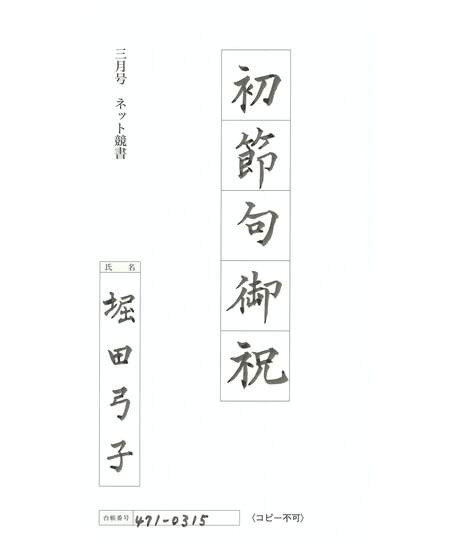 初節句御祝
三月号 ネット競書
氏名
堀田弓子
台帳番号 471-0315
〈コピー不可〉